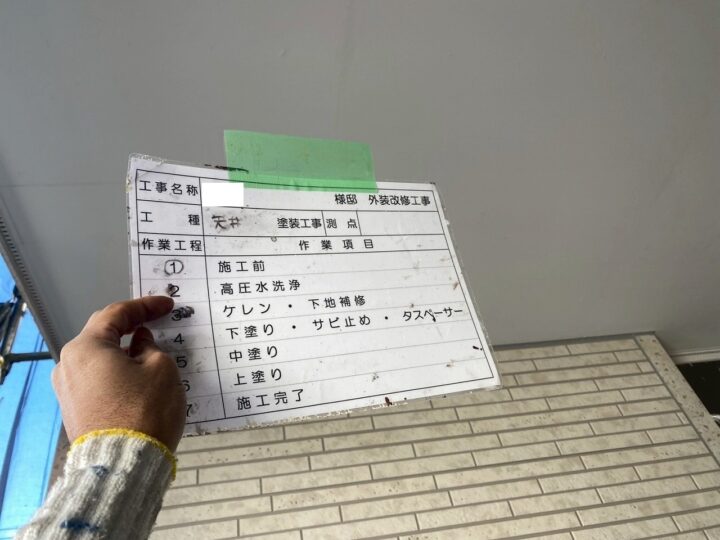 工事名称 様邸 外装改修工事
工種 天井 塗装工事 測点
作業工程 作業項目
① 施工前
2 高圧水洗浄
3 ケレン ・ 下地補修
4 下塗り ・ サビ止め ・ タスペーサー
5 中塗り
6 上塗り
7 施工完了